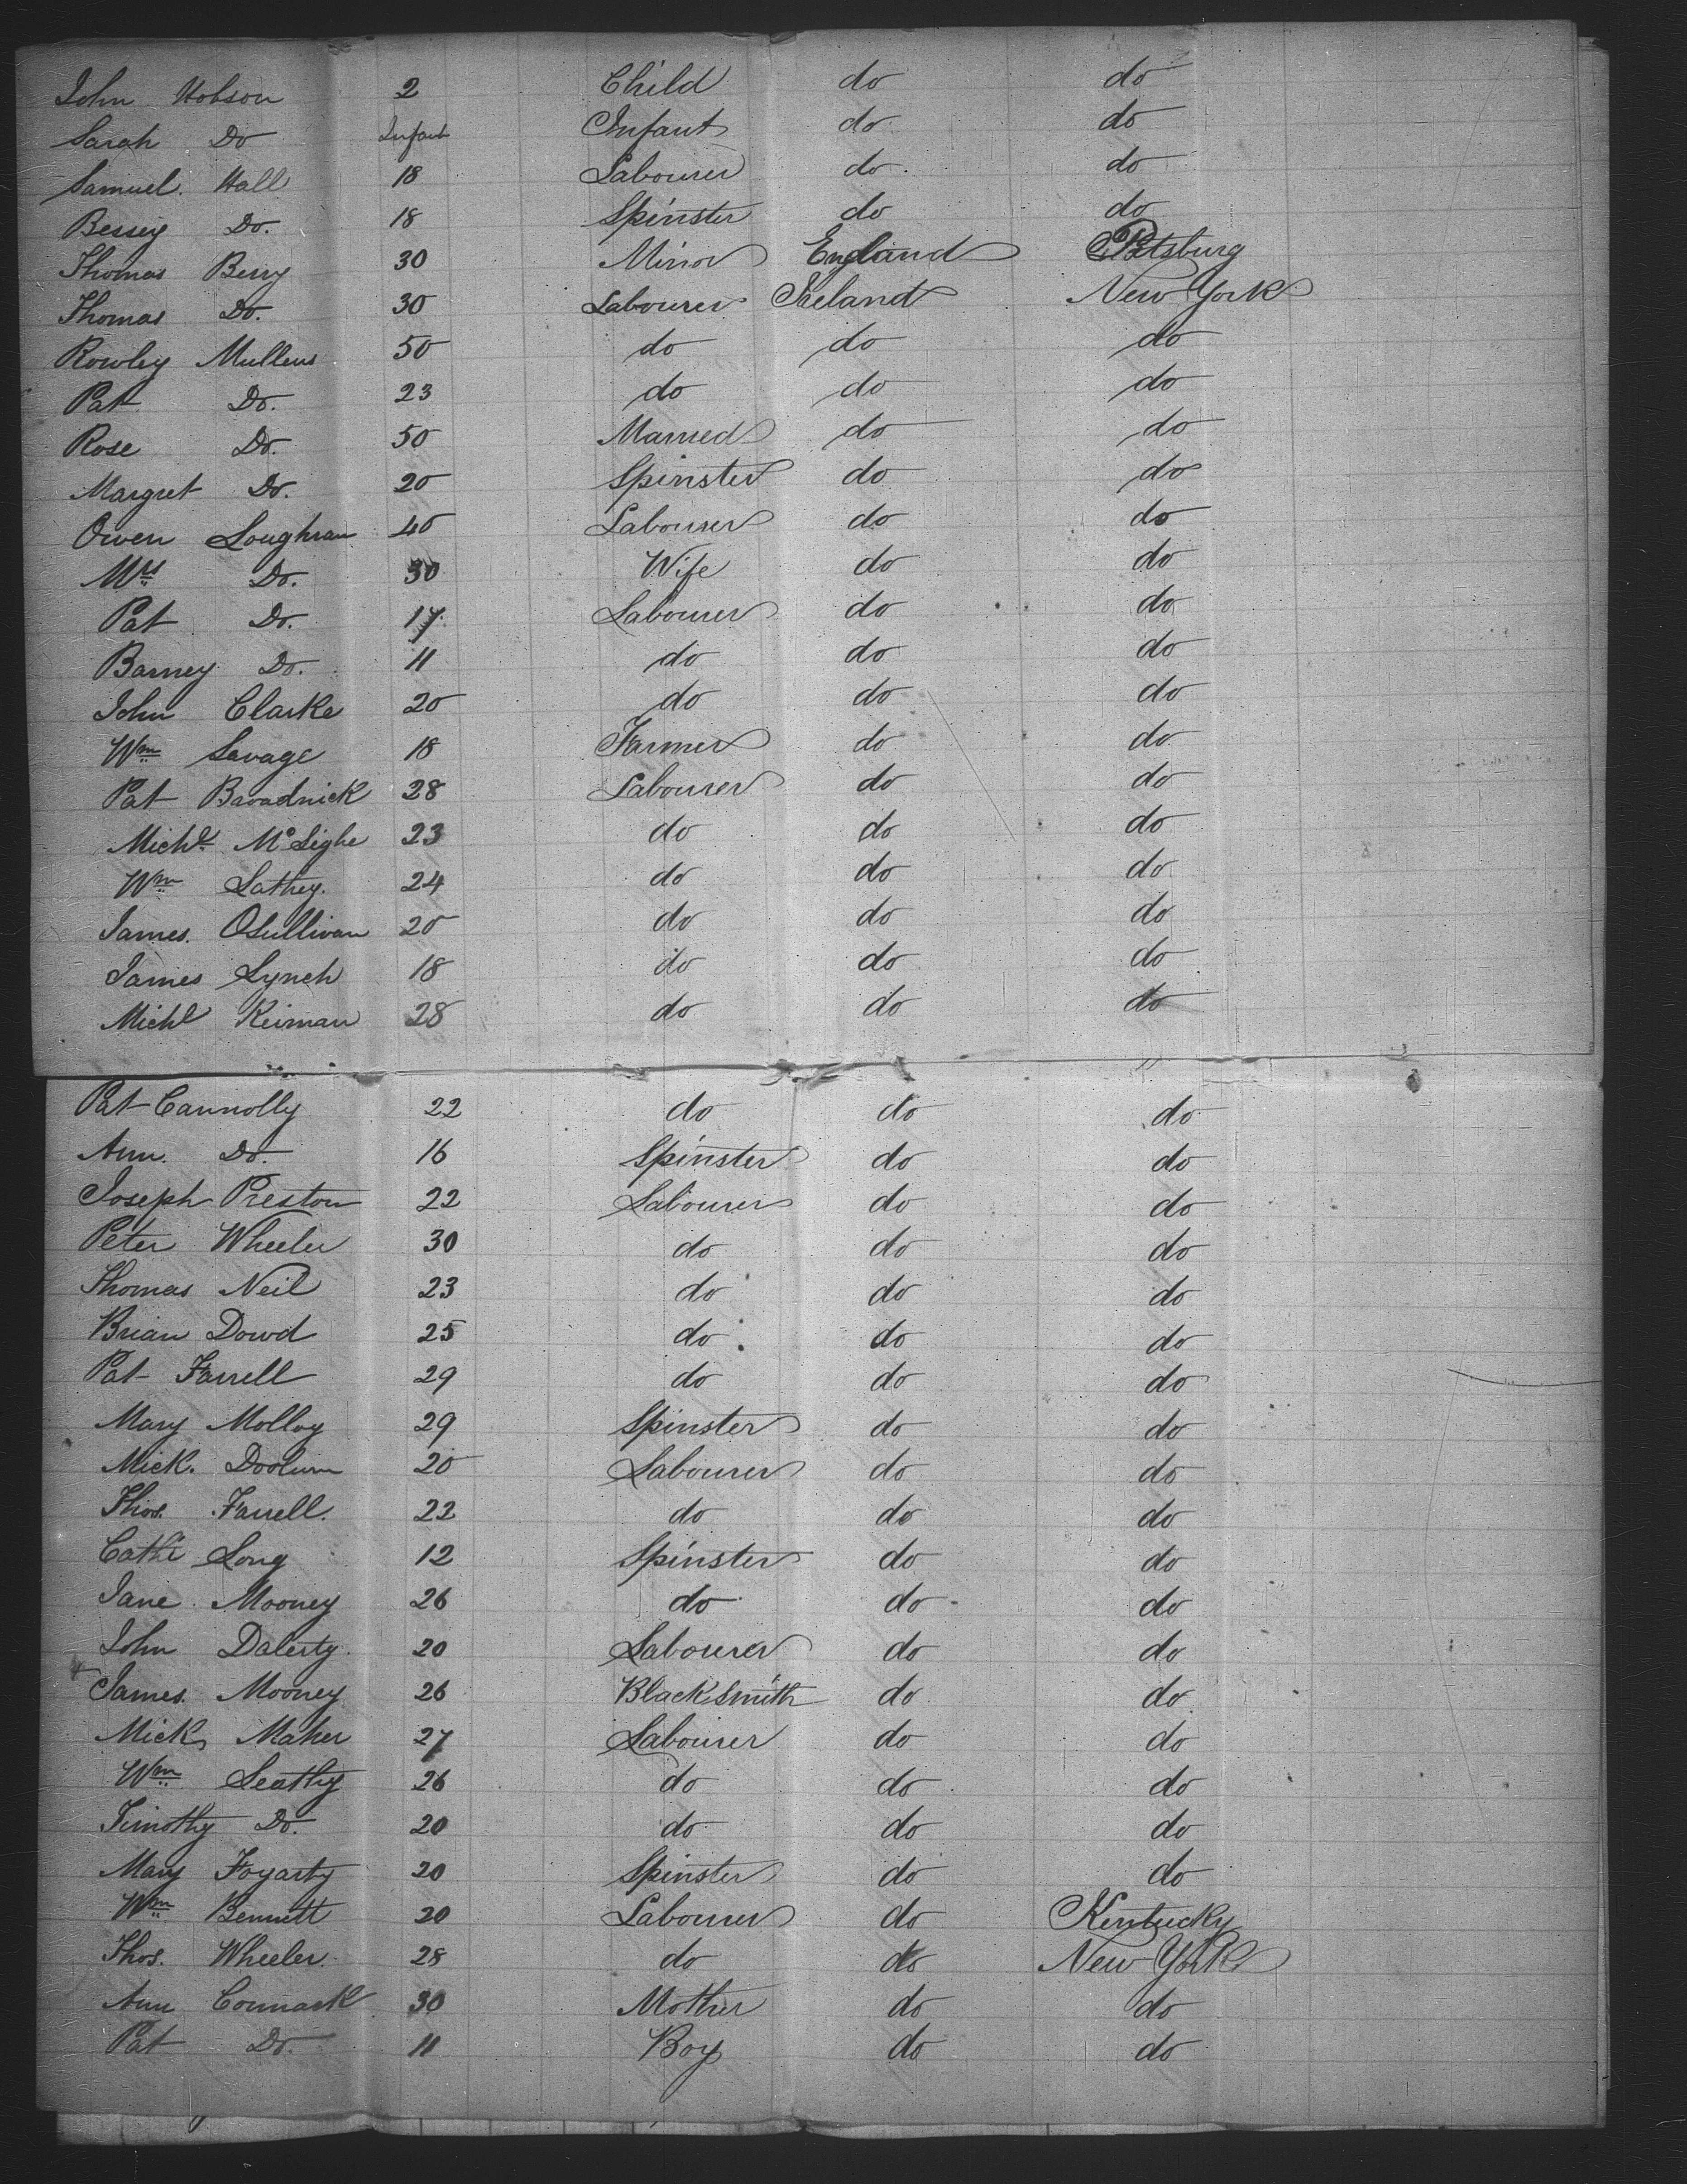 John Hobson 2 Child do do
Sarah Do Infant Infant do do
Samuel Hall 18 Labourer do do
Bessey Do. 18 Spinster do do
Thomas Berry 30 Minor England Pittsburg
Thomas Do. 30 Labourer Ireland New York
Rowley Mullens 50 do do do
Pat Do. 23 do do do
Rose Do. 50 Married do do
Margret Do. 20 Spinster do do
Owen Loughran 40 Labourer do do
Mrs Do. 30 Wife do do
Pat Do. 17 Labourer do do
Barney Do. 11 do do do
John Clarke 20 do do do
Wm Savage 18 Farmer do do
Pat Broadnick 28 Labourer do do
Michl McLighe 23 do do do
Wm Lathey. 24 do do do
James. OSullivan 20 do do do
James Lynch 18 do do do
Michl Keiman 28 do do do
Pat Cannolly 22 do do do
Ann. Do. 16 Spinster do do
Joseph Preston 22 Labourer do do
Peter Wheeler 30 do do do
Thomas Neil 23 do do do
Brian Dowd 25 do do do
Pat Farrell 29 do do do
Mary Molloy 29 Spinster do do
Mick. 20 Labourer do do
Thos. Farrell. 22 do do do
Cathe Long 12 Spinster do do
Jane Mooney 26 do do do
John Dalerty. 20 Labourer do do
James. Mooney 26 Blacksmith do do
Mick Maher 27 Labourer do do
Wm Leathy 26 do do do
Timothy Do. 20 do do do
Mary Fogarty 20 Spinster do do
Wm Bennett 20 Labourer do Kentucky
Thos. Wheeler. 28 do do New York
Ann Cormack 30 Mother do do
Pat Do. 11 Boy do do